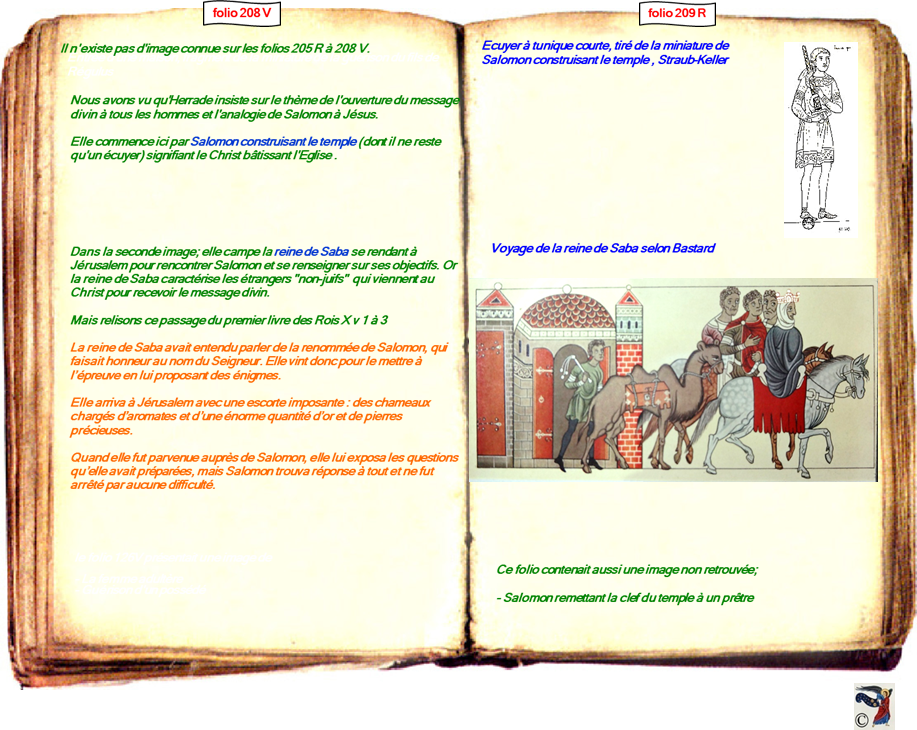 folio 208 V
Il n'existe pas d'image connue sur les folios 205 R à 208 V.
Nous avons vu qu'Herrade insiste sur le thème de l'ouverture du message
divin à tous les hommes et l'analogie de Salomon à Jésus.
Elle commence ici par Salomon construisant le temple (dont il ne reste
qu'un écuyer) signifiant le Christ bâtissant l'Eglise .
Dans la seconde image; elle campe la reine de Saba se rendant à
Jérusalem pour rencontrer Salomon et se renseigner sur ses objectifs. Or
la reine de Saba caractérise les étrangers "non-juifs" qui viennent au
Christ pour recevoir le message divin.
Mais relisons ce passage du premier livre des Rois X v 1 à 3
La reine de Saba avait entendu parler de la renommée de Salomon, qui
faisait honneur au nom du Seigneur. Elle vint donc pour le mettre à
l'épreuve en lui proposant des énigmes.
Elle arriva à Jérusalem avec une escorte imposante : des chameaux
chargés d'aromates et d'une énorme quantité d'or et de pierres
précieuses.
Quand elle fut parvenue auprès de Salomon, elle lui exposa les questions
qu'elle avait préparées, mais Salomon trouva réponse à tout et ne fut
arrêté par aucune difficulté.
folio 209 R
Ecuyer à tunique courte, tiré de la miniature de
Salomon construisant le temple , Straub-Keller
Voyage de la reine de Saba selon Bastard
Ce folio contenait aussi une image non retrouvée;
- Salomon remettant la clef du temple à un prêtre
©